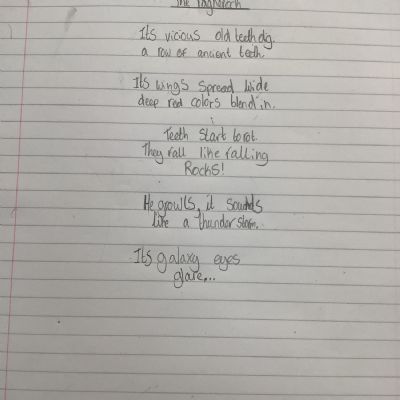 The
Its vicious old teeth dig.
a row of ancient teeth.
Its wings spread wide
deep red colors blend in.
Teeth start to rot.
They fall like falling
Rocks!
He growls, it sounds
like a thunder storm.
Its galaxy eyes
glare...